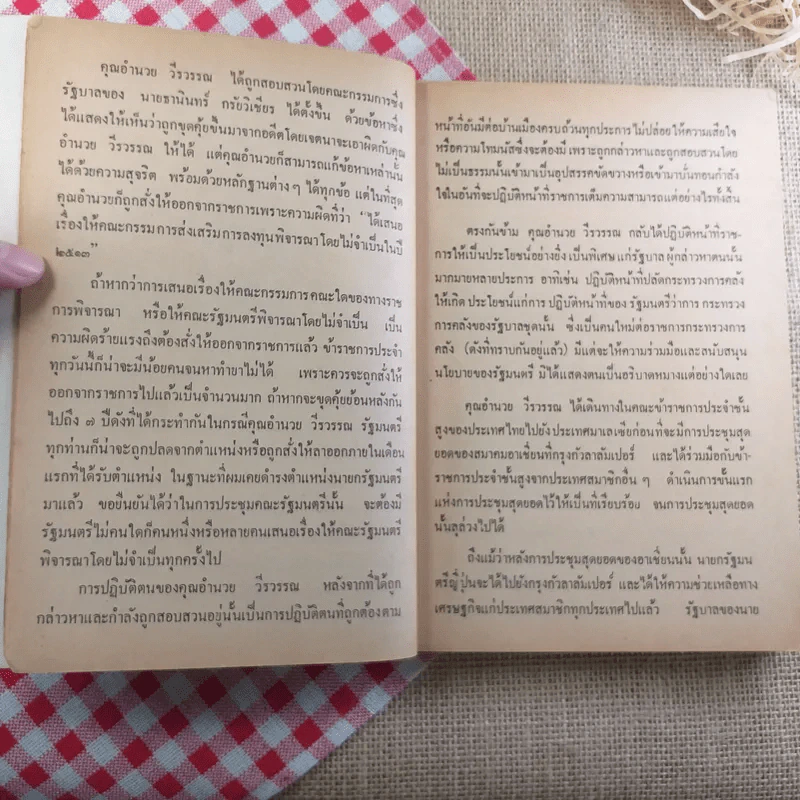 คุณอำนวย วีรวรรณ ได้ถูกสอบสวนโดยคณะกรรมการซึ่ง
รัฐบาลของ นายธานินทร์ กรัยวิเชียร ได้ตั้งขึ้น ด้วยข้อหาซึ่ง
ได้แสดงให้เห็นว่าถูกขุดคุ้ยขึ้นมาจากอดีตโดยเจตนาจะเอาผิดกับคุณ
อำนวย วีรวรรณ ให้ได้ แต่คุณอำนวยก็สามารถแก้ข้อหาเหล่านั้น
ได้ด้วยความสุจริต พร้อมด้วยหลักฐานต่างๆ ได้ทุกข้อ แต่ในที่สุด
คุณอำนวยก็ถูกสั่งให้ออกจากราชการเพราะความผิดที่ว่า "ได้เสนอ
เรื่องให้คณะกรรมการส่งเสริมการลงทุนพิจารณาโดยไม่จำเป็นในปี
๒๕๑๓"
ถ้าหากว่าการเสนอเรื่องให้คณะกรรมการคณะใดของทางราช
การพิจารณา หรือให้คณะรัฐมนตรีพิจารณาโดยไม่จำเป็น เป็น
ความผิดร้ายแรงถึงต้องสั่งให้ออกจากราชการแล้ว ข้าราชการประจำ
ทุกวันนี้ก็น่าจะมีน้อยคนจนหาทำยาไม่ได้ เพราะควรจะถูกสั่งให้
ออกจากราชการไปแล้วเป็นจำนวนมาก ถ้าหากจะขุดคุ้ยย้อนหลังกัน
ไปถึง ๗ ปีดังที่ได้กระทำกันในกรณีคุณอำนวย วีรวรรณ รัฐมนตรี
ทุกท่านก็น่าจะถูกปลดจากตำแหน่งหรือถูกสั่งให้ลาออกภายในเดือน
แรกที่ได้รับตำแหน่ง ในฐานะที่ผมเคยดำรงตำแหน่งนายกรัฐมนตรี
มาแล้ว ขอยืนยันได้ว่าในการประชุมคณะรัฐมนตรีนั้น จะต้องมี
รัฐมนตรีไม่คนใดก็คนหนึ่งหรือหลายคนเสนอเรื่องให้คณะรัฐมนตรี
พิจารณาโดยไม่จำเป็นทุกครั้งไป
การปฏิบัติตนของคุณอำนวย วีรวรรณ หลังจากที่ได้ถูก
กล่าวหาและกำลังถูกสอบสวนอยู่นั้นเป็นการปฏิบัติตนที่ถูกต้องตาม
หน้าที่อันมีต่อบ้านเมืองครบถ้วนทุกประการ ไม่ปล่อยให้ความเสียใจ
หรือความโทมนัสซึ่งจะต้องมี เพราะถูกกล่าวหาและถูกสอบสวนโดย
ไม่เป็นธรรมนั้นเข้ามาเป็นอุปสรรคขัดขวางหรือเข้ามาบั่นทอนกำลัง
ใจในอันที่จะปฏิบัติหน้าที่ราชการเต็มความสามารถแต่อย่างไรทั้งสิ้น
ตรงกันข้าม คุณอำนวย วีรวรรณ กลับได้ปฏิบัติหน้าที่ราช-
การให้เป็นประโยชน์อย่างยิ่ง เป็นพิเศษ แก่รัฐบาล ผู้กล่าวหาตนนั้น
มากมายหลายประการ อาทิเช่น ปฏิบัติหน้าที่ปลัดกระทรวงการคลัง
ให้เกิด ประโยชน์แก่การ ปฏิบัติหน้าที่ของ รัฐมนตรีว่าการ กระทรวง
การคลังของรัฐบาลชุดนั้น ซึ่งเป็นคนใหม่ต่อราชการกระทรวงการ
คลัง (ดังที่ทราบกันอยู่แล้ว) มีแต่จะให้ความร่วมมือและสนับสนุน
นโยบายของรัฐมนตรี มิได้แสดงตนเป็นอริบาดหมางแต่อย่างใดเลย
คุณอำนวย วีรวรรณ ได้เดินทางในคณะข้าราชการประจำชั้น
สูงของประเทศไทยไปยังประเทศมาเลเซียก่อนที่จะมีการประชุมสุด
ยอดของสมาคมอาเซี่ยนที่กรุงกัวลาลัมเปอร์ และได้ร่วมมือกับข้า-
ราชการประจำชั้นสูงจากประเทศสมาชิกอื่น ๆ ดำเนินการขั้นแรก
แห่งการประชุมสุดยอดไว้ให้เป็นที่เรียบร้อย จนการประชุมสุดยอด
นั้นลุล่วงไปได้
ถึงแม้ว่าหลังการประชุมสุดยอดของอาเซี่ยนนั้น นายกรัฐมน
ตรีญี่ปุ่นจะได้ไปยังกรุงกัวลาลัมเปอร์ และได้ให้ความช่วยเหลือทาง
เศรษฐกิจแก่ประเทศสมาชิกทุกประเทศไปแล้ว รัฐบาลของนาย